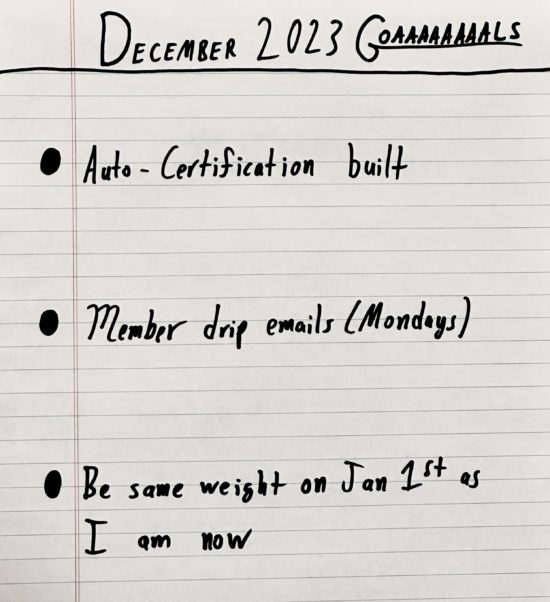 December 2023 Goaaaaaaaals
● Auto-Certification built
● Member drip emails (Mondays)
● Be same weight on Jan 1st as
I am now